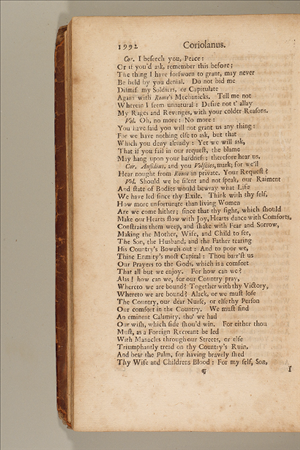 1992 Coriolanus.
Cor. I beseech you, Peace:
Or if you'd ask, remember this before;
The thing I have forsworn to grant, may never
Be held by you denial. Do not bid me
Dismiss my Soldiers, or Capitulate
Again with Rome's Mechanicks. Tell me not
Wherein I seem unnatural: Desire not t'allay
My Rages and Revenges, with your colder Reasons.
Vol. Oh, no more: No more:
You have said you will not grant us any thing:
For we have nothing else to ask, but that
Which you deny already: Yet we will ask,
That if you fail in our request, the blame
May hang upon your hardness; therefore hear us.
Cor. Aufidius, and you Volscies, mark; for we'll
Hear nought from Rome in private. Your Request?
Vol. Should we be silent and not speak, our Raiment
And state of Bodies would bewray what Life
We have led since thy Exile. Think with thy self,
How more unfortunate than living Women
Are we come hither; since that thy sight, which should
Make our Hearts flow with Joy, Hearts dance with Comforts,
Constrains them weep, and shake with Fear and Sorrow,
Making the Mother, Wife, and Child to see,
The Son, the Husband, and the Father tearing
His Country's Bowels out: And to poor we,
Thine Enmity's most Capital: Thou barr'st us
Our Prayers to the Gods, which is a comfort
That all but we enjoy. For how can we?
Alas! how can we, for our Country pray,
Whereto we are bound? Together with thy Victory,
Whereto we are bound? Alack, or we must lose
The Country, our dear Nurse, or else thy Person
Our comfort in the Country. We must find
An eminent Calamity, tho' we had
Our wish, which side should win. For either thou
Must, as a Foreign Recreant be led
With Manacles throughout our Streets, or else
Triumphantly tread on thy Country's Ruin,
And bear the Palm, for having bravely shed
Thy Wife and Childrens Blood: For my self, Son,
I